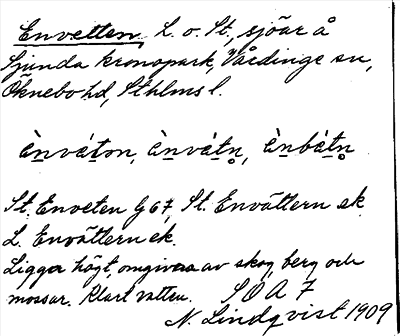 Envetten L. o. St., sjöar å
Sjunda kronopark, Vårdinge sn,
Öknebo hd, Sthlms l.
ànvátən, ànvátn, ànbátn
St. Enveten G 67, St. Envättern ek
L. Envättern ek.
Ligger högt, omgivna av skog, berg och
mossar. Klart vatten. SOA 7
N. Lindqvist 1909